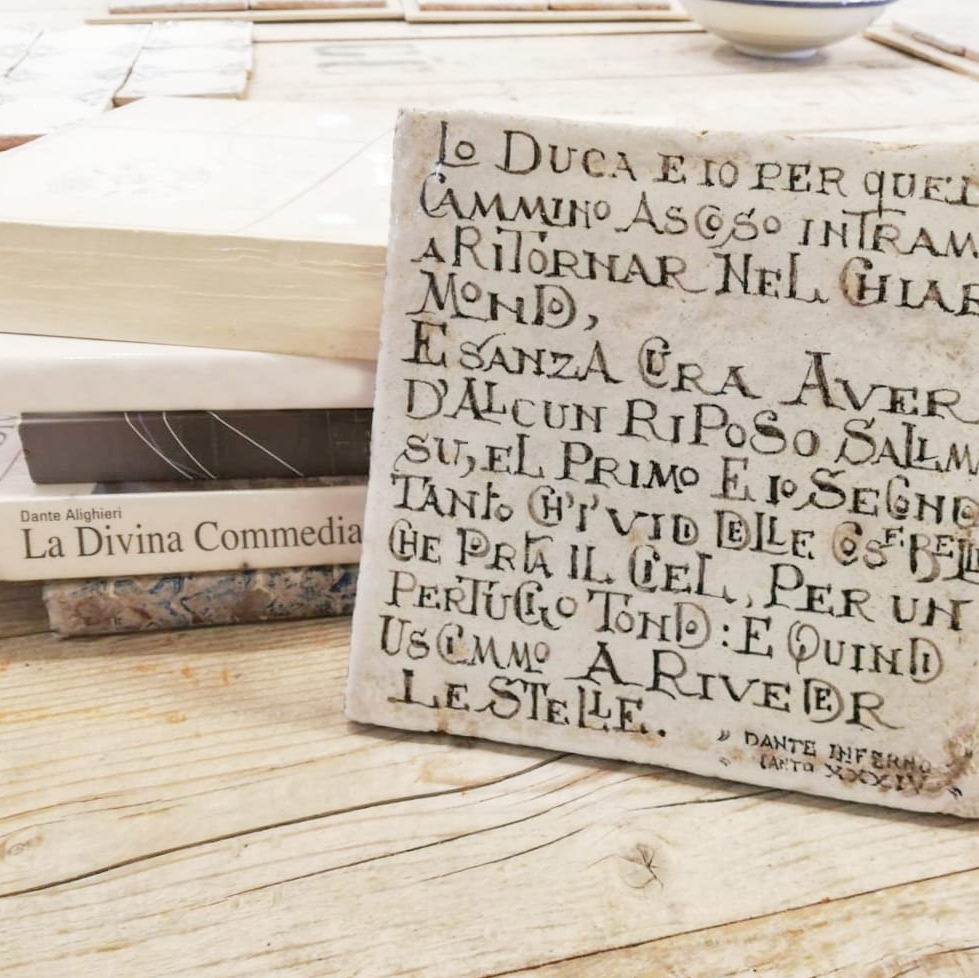 Dante Alighieri
La Divina Commedia
LO DUCA E IO PER QUEL
CAMMINO ASCOSO INTRAM
A RITORNAR NEL CHIAR
MONDO,
E SANZA CURA AVER
D'ALCUN RIPOSO SALIM
SU, EL PRIMO E IO SECOND
TANTO CH'I' VIDI DELLE COSE BELL
CHE PORTA IL CIEL, PER UN
PERTUGIO TONDO: E QUINDI
USCIMMO A RIVEDER
LE STELLE.
" DANTE INFERNO
CANTO XXXIV "